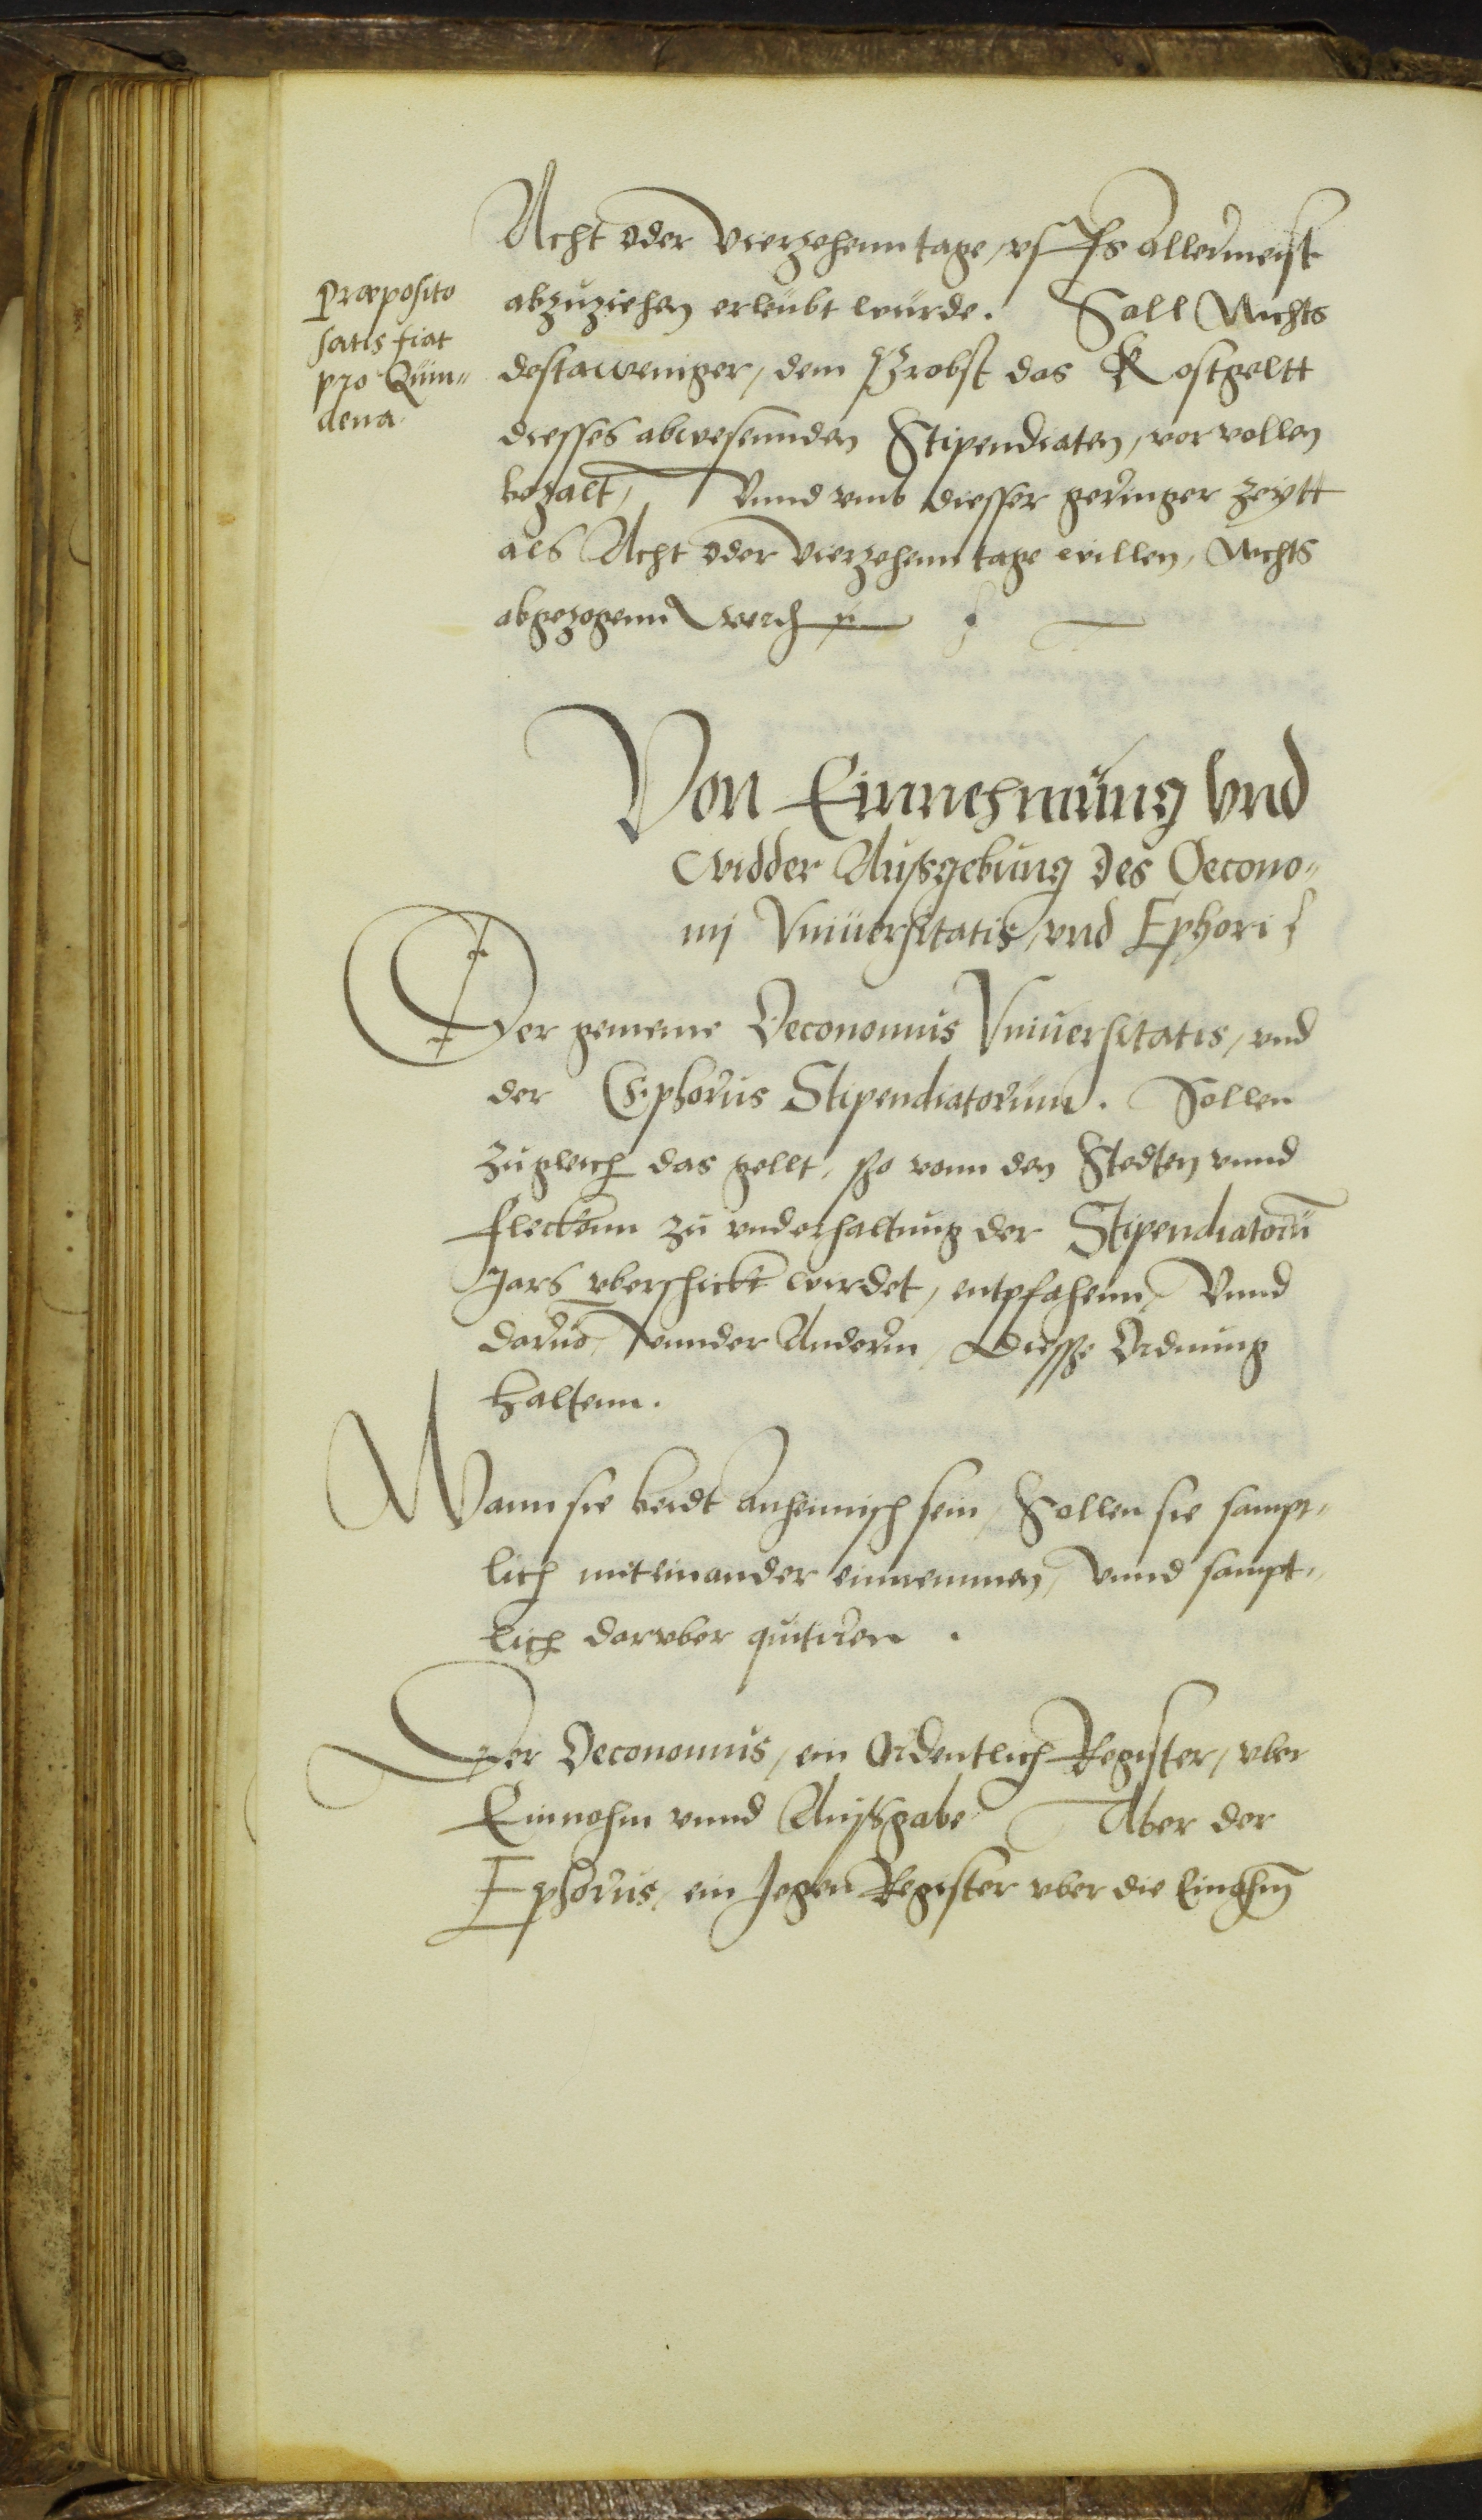 Præposito
satis fiat
pro Quin„
dena.
Acht oder Vierzehenn tage, vfs allermeist
abzuziehen erleubt wurde. Soll Nichts
destaweniger, dem Probst das Kostgeltt
diesses abwesennden Stipendiaten, vor vollen
bezalt, Vnnd vmb diesser geringer zeytt
als Acht oder Vierzehenn tage willen, Nichts
abgezogenn
Von Einnehmung vnd
widder Außgebung des Oecono„
mj Vniuersitatis, vnd Ephori
Der gemeine Oeconomus Vniuersitatis, vnd
der Ephorus Stipendiatorum. Sollen
zugleich das gellt, so vonn den Stedten vnnd
Fleckenn zu vnderhaltung der Stipendiatorū
Jars vberschickt wirdet, entpfahenn, Vnnd
darus, vnnder Andernn, Diesse Ordnung
haltenn.
Wann sie beidt anheimisch sein, Sollen sie sampt„
lich miteinander einnemmen, Vnnd sampt„
lich darvber quitiren.
Der Oeconomus, ein Ordentlich Register, vber
Einnahm vnnd Außgabe Aber der
Ephorus, ein Jegen Register vber die Einahm